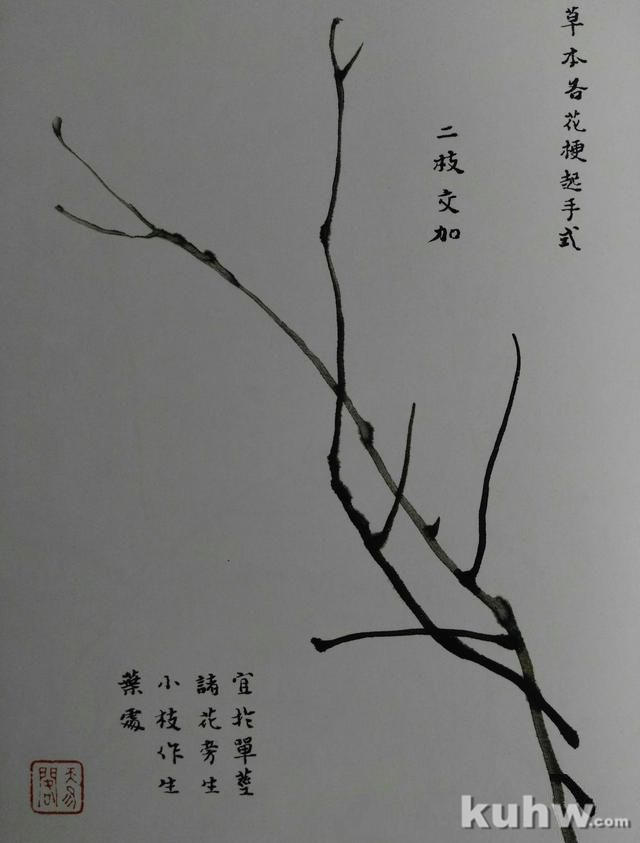 草本各花梗起手式
二枝交加
宜於單莖
諸花旁生
小枝作生
葉處
kuhw.com